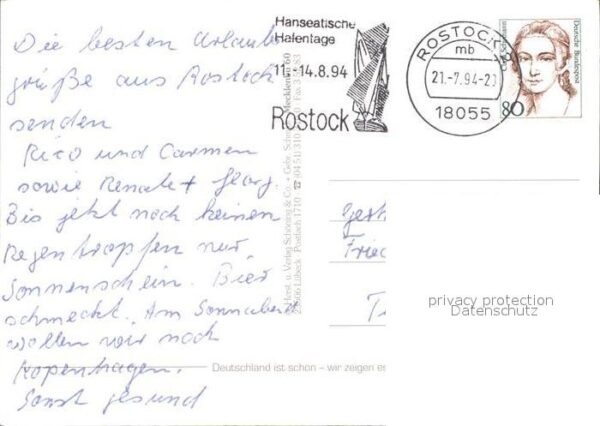 Die besten Urlaubs
grüße aus Rostock
senden
Rico und Carmen
sowie Renate + Georg.
Bis jetzt noch keinen
Regentropfen nur
Sonnenschein. Bier
schmeckt. Am Sonnabend
wollen wir nach
Kopenhagen.
Sonst gesund
Hanseatische
Hafentage
11.-14.8.94
Rostock
ROSTOCK
mb
21.-7.94-20
18055
Deutsche Bundespost
80
Schöning & Co. + Gebr. Schmidt
Lübeck · Postfach 1710 ☎ (04 51) 310
Gesch
Fried
privacy protection
Datenschutz
Deutschland ist schön – wir zeigen es